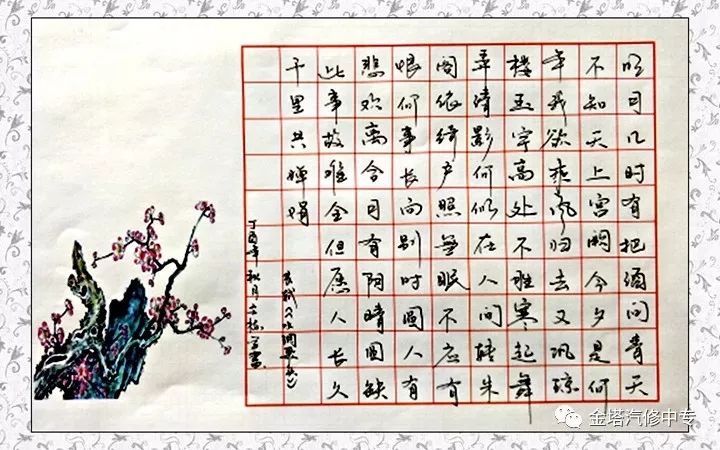 明月几时有把酒问青天
不知天上宫阙今夕是何
年我欲乘风归去又恐琼
楼玉宇高处不胜寒起舞
弄清影何似在人间转朱
阁低绮户照無眠不应有
恨何事长向别时圆人有
悲欢离合月有阴晴圆缺
此事故难全但愿人长久
千里共婵娟
苏轼《水调歌头》
丁酉年秋月
金塔汽修中专